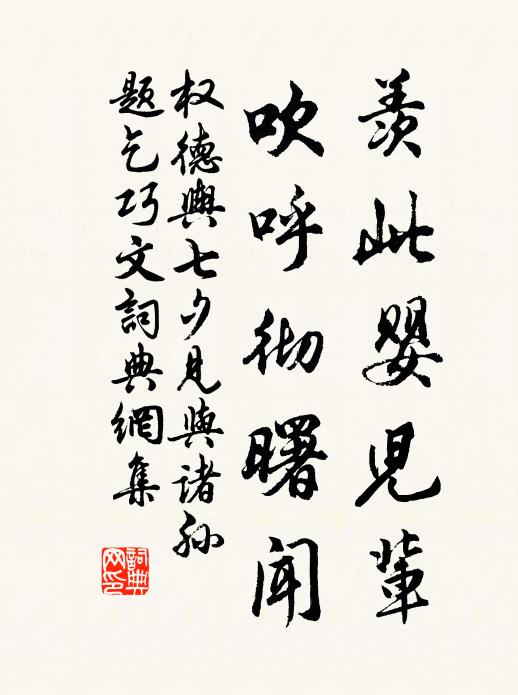 羨此嬰兒輩
吹呼彻曙聞
权德與七夕見與諸孙
題乞巧文詞典網集
詞典网印